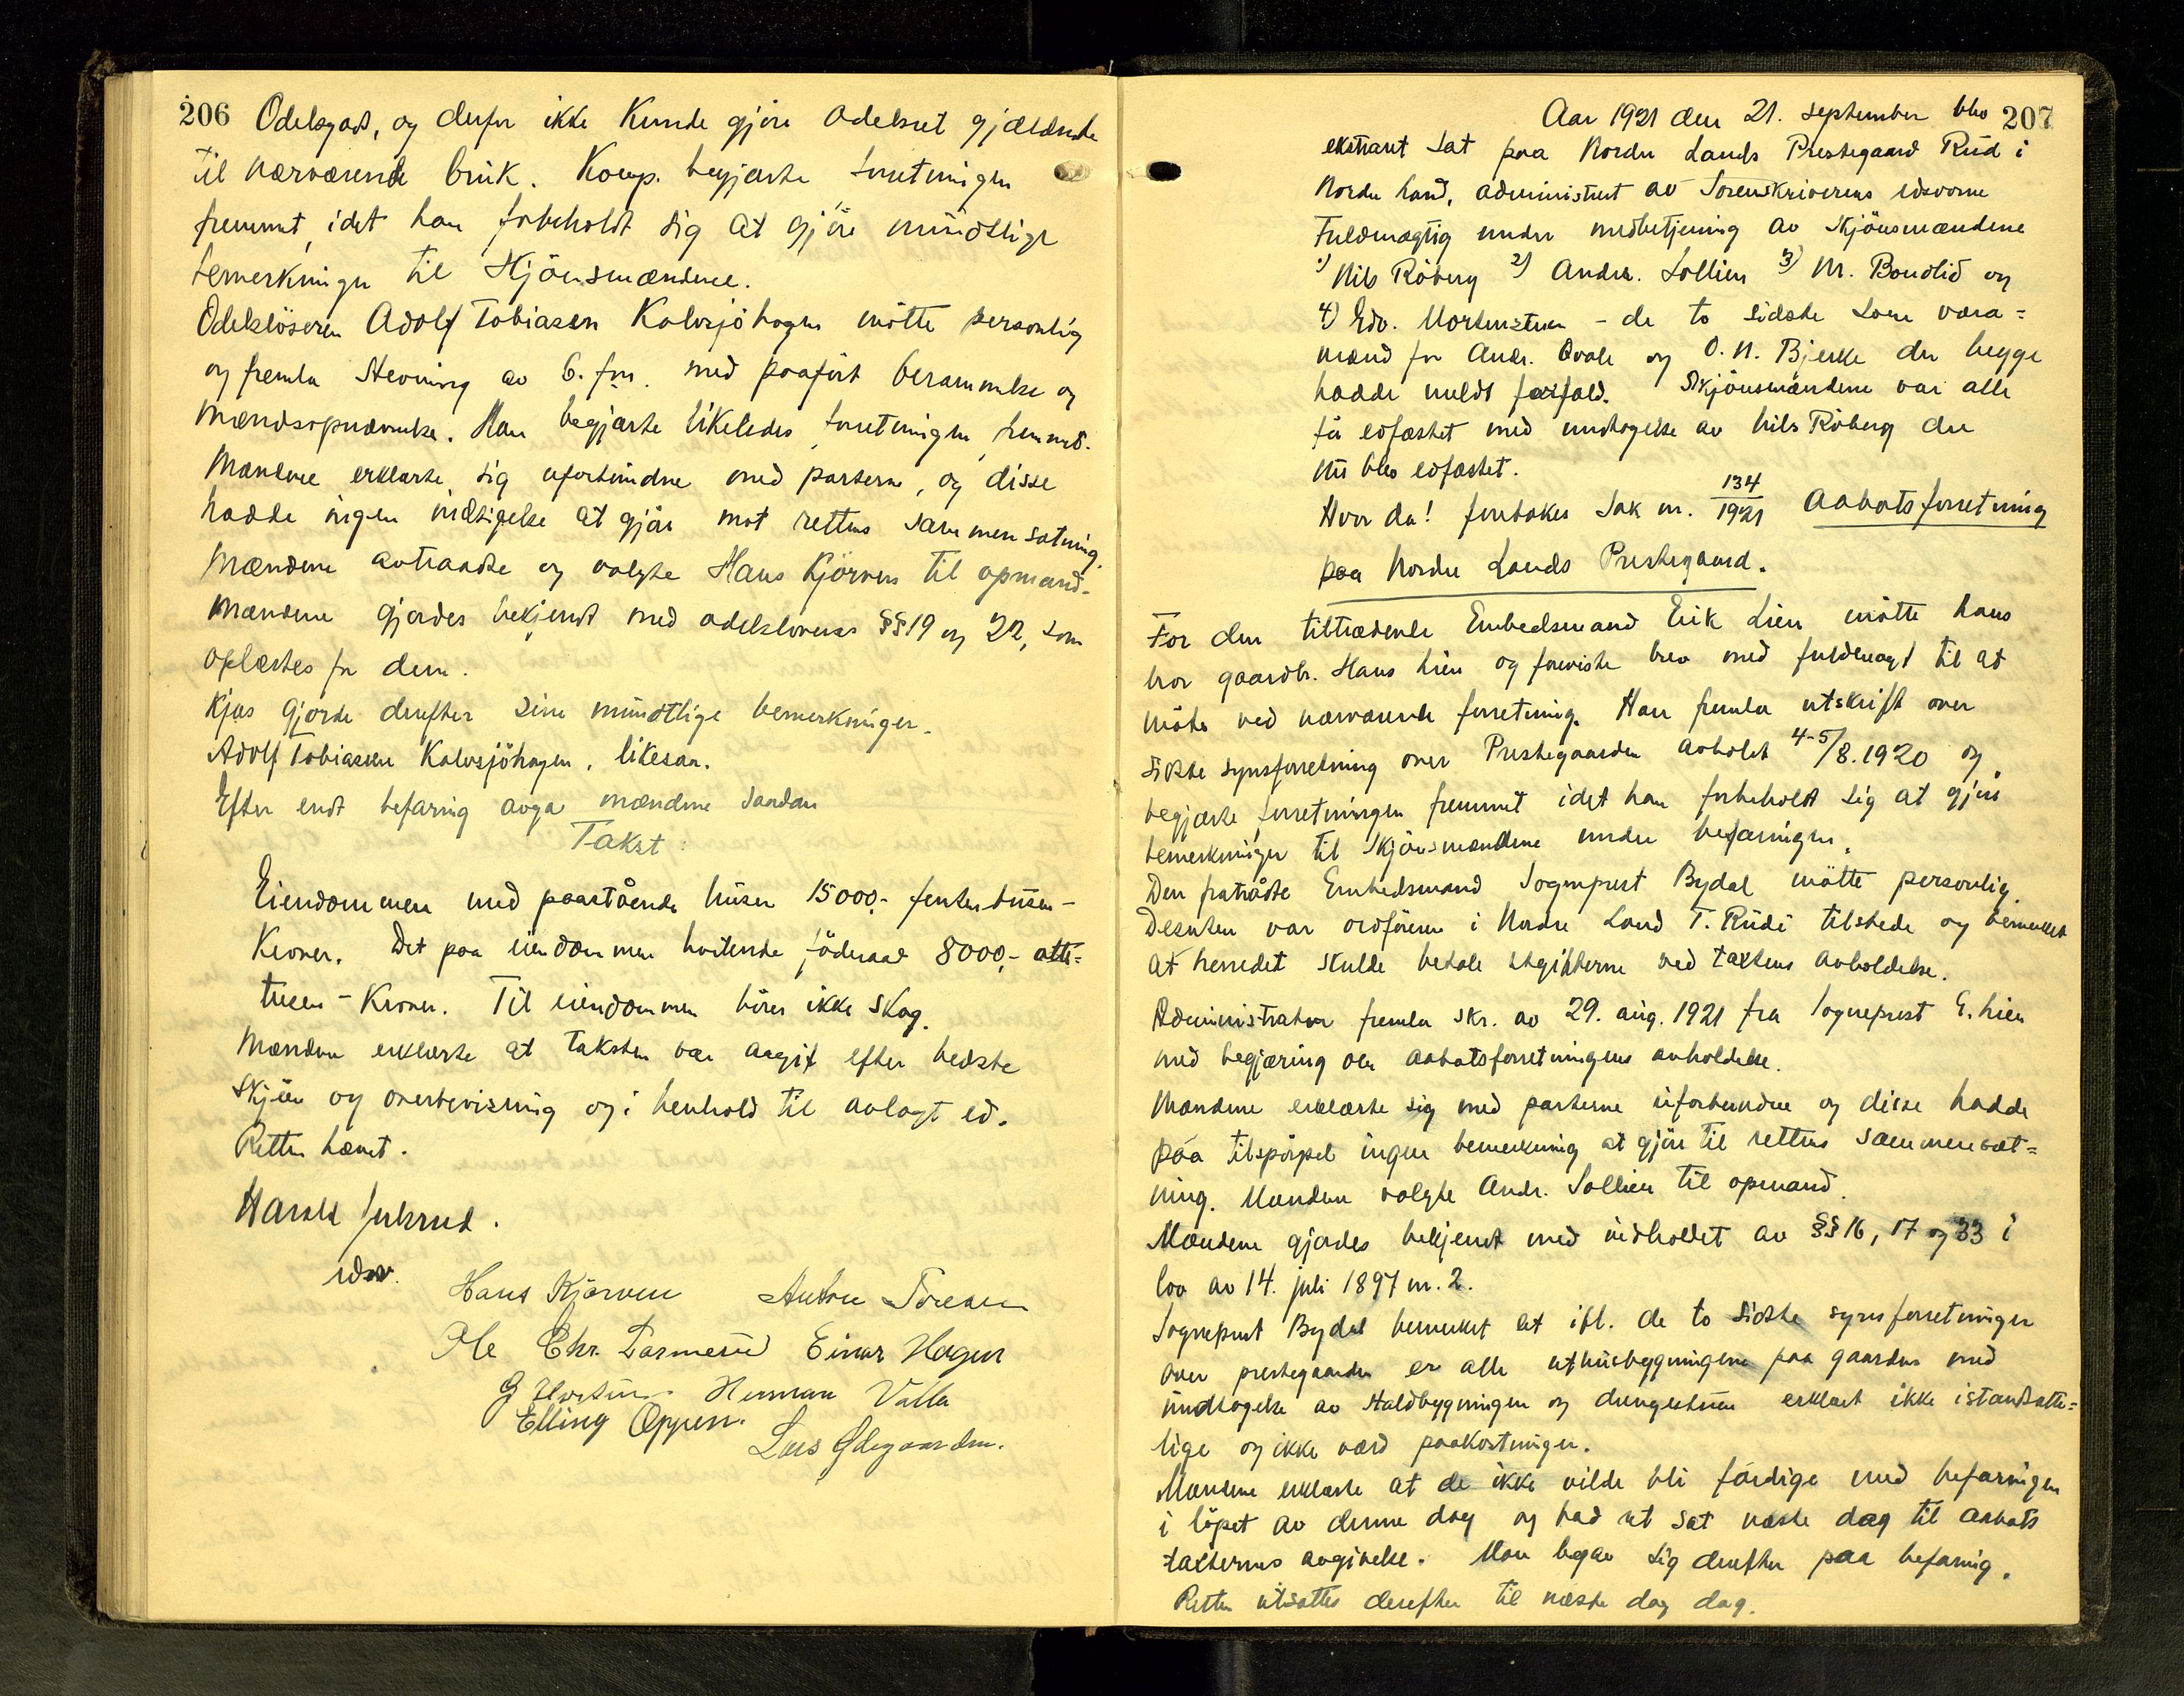 206 Odelsgods, og derfor ikke kunde gjøre odelsret gjældende
til nærværende bruk. Komp. begjærte forretningen
fremmet, idet han forbeholdt sig at gjøre mundtlige
bemerkninger til Skjönsmændene.
Odelslöseren Adolf Tobiasen Kalvsjöhagen mötte personlig
og fremla Stevning av 6. fm. med paaført berammelse og
mændsopnævnelse. Han begjærte likeledes forretningen fremmet.
Mændene erklærte sig uforbundne med parterne, og disse
hadde ingen indsigelse at gjöre mot rettens sammensætning.
Mændene avtraadte og valgte Hans Kjörven til opmand.
Mændene gjordes bekjendt med odelslovens §§ 19 og 22, som
oplæstes for dem.
Kjøs gjorde derefter sine mundtlige bemerkninger.
Adolf Tobiasen Kalvsjöhagen, likesaa.
Efter endt befaring avga mændene saadan
Takst:
Eiendommen med paastående huser 15000,- femten tusen-
Kroner. Det paa eiendommen heftende föderaad 8000,- otte=
tusen - Kroner. Til eiendommen hörer ikke skog.
Mændene erklærte at taksten var avgit efter bedste
skjön og overbevisning og i henhold til avlagt ed.
Retten hævet.
Harald Julsrud.
edsv.
Hans Kjörven Anton
Ole Chr. Einar Hagen
G Herman Valla
Elling Oppen.
Lars Ødegaarden.
207
Aar 1921 den 21. september blev
ekstraret sat paa Nordre Lands Prestegaard Rud i
Nordre Land, administrert av Sorenskriverens edsvorne
Fuldmægtig under medbetjening av Skjönsmændene
1) Nils Röberg 2) Andr. Sollien 3) M. Bondlid og
4) Edv. Mortenstuen - de to sidste som vara=
mænd for Andr. Qvale og O. N. Bjerke der begge
hadde meldt forfald. Skjönsmændene var alle
för edfæstet med undtagelse av Nils Röberg der
nu blev edfæstet.
Hvor da! foretokes Sak nr. 134/1921 Aabotsforretning
paa Nordre Lands Prestegaard.
For den tiltrædende Embedsmand Erik Lien mötte hans
bror gaardbr. Hans Lien og foreviste brev med fuldmagt til at
möte ved nærværende forretning. Han fremla utskrift over
sidste synsforretning over Prestegaarden avholdt 4-5/8.1920 og
begjærte forretningen fremmet idet han forbeholdt sig at gjöre
bemerkninger til Skjönsmændene under befaringen.
Den fratrådte Embedsmand Sogneprest Bydal mötte personlig.
Desuten var ordföreren i Nordre Land T. Rudi tilstede og bemerket
at herredet skulde betale utgifterne ved takstens avholdelse.
Administrator fremla skr. av 29. aug. 1921 fra Sogneprest E. Lien
med begjæring om aabotsforretningens avholdelse.
Mændene erklærte sig med parterne uforbundne og disse hadde
paa tilspörgsel ingen bemerkning at gjöre til rettens sammensæt=
ning. Mændene valgte Andr. Sollien til opmand.
Mændene gjordes bekjendt med indholdet av §§ 16, 17 og 33 i
lov av 14. juli 1897 nr. 2.
Sogneprest Bydal bemerket at ifl. de to sidste synsforretninger
over prestegaarden er alle uthusbygningene paa gaarden med
undtagelse av staldbygningen og erklært ikke istandsætte=
lige og ikke værd paakostninger.
Mændene erklærte at de ikke vilde bli færdige med befaringen
i löpet av denne dag og bad ut sat næste dag til aabots
taksternes avgivelse. Man begav sig derefter paa befaring.
Retten utsattes derefter til næste dag dag.